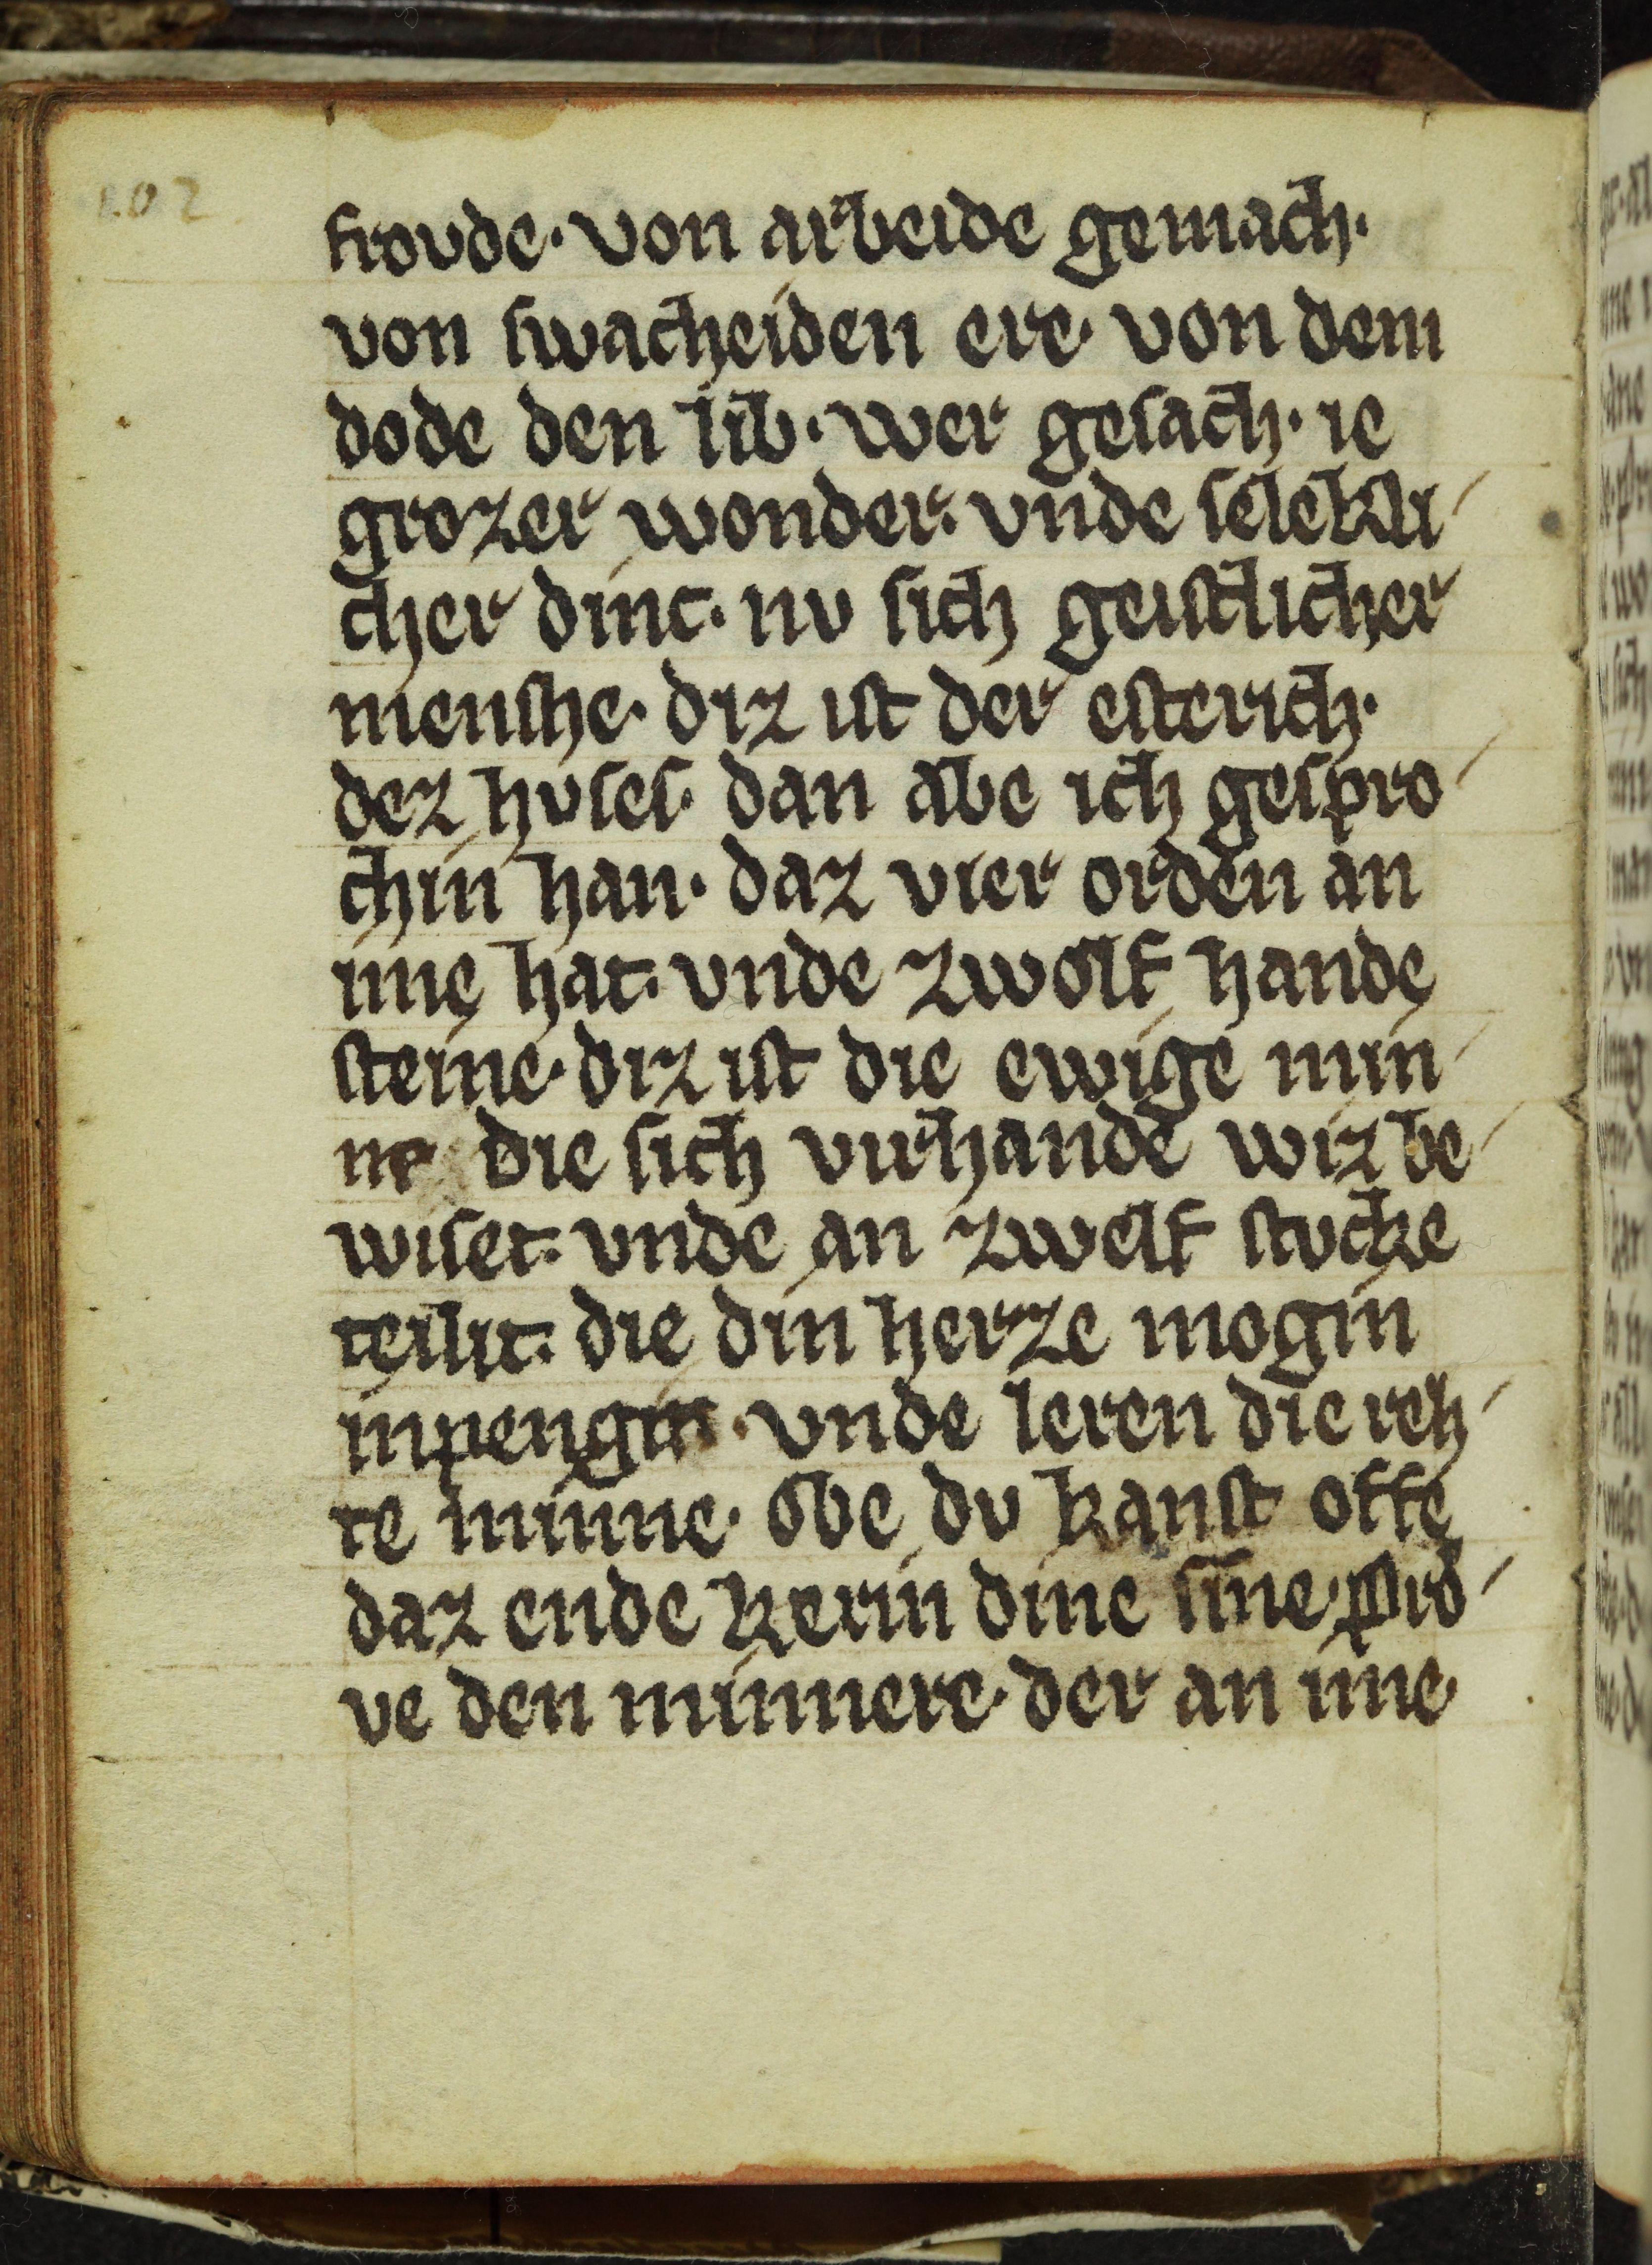 202
frovde. von arbeide gemach.
von swacheiden ere. von dem
dode den lib. wer gesach. ie
grozer wonder. vnde selekli-
cher dinc. nv sich geistlicher
menshe. diz ist der esterich.
dez hvses. dan abe ich gespro-
chin han. daz vier orden an
ime hat. vnde zwolf hande
steine. diz ist die ewige min-
ne die sich virhande wiz be-
wiset. vnde an zwelf stvcke
teilit. die din herze mogin
inpengin. vnde leren die reh-
te minne. obe dv kanst offe
daz ende kerin dine sīne. pro-
ve den minnere. der an ime